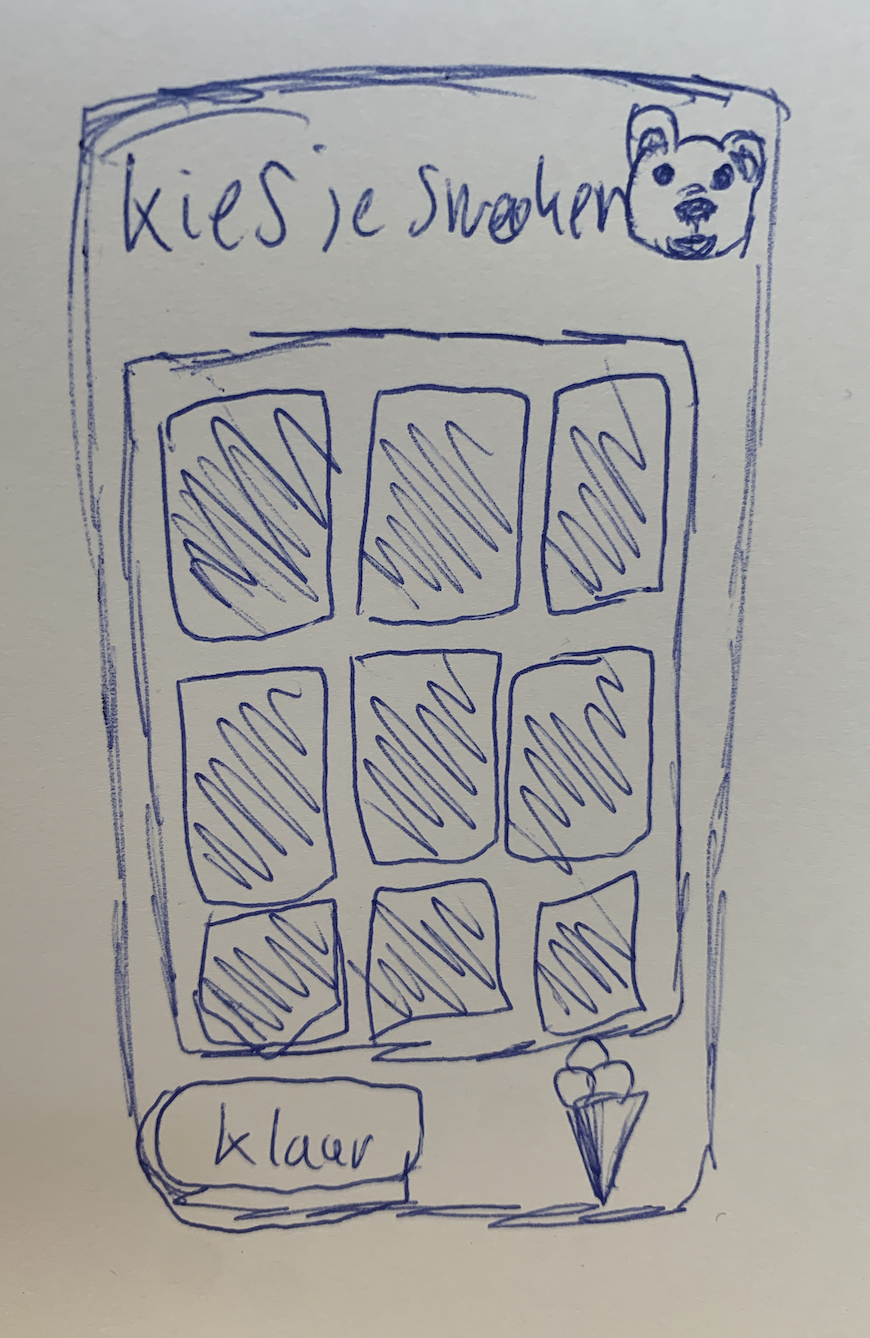 kies je smaken
klaar